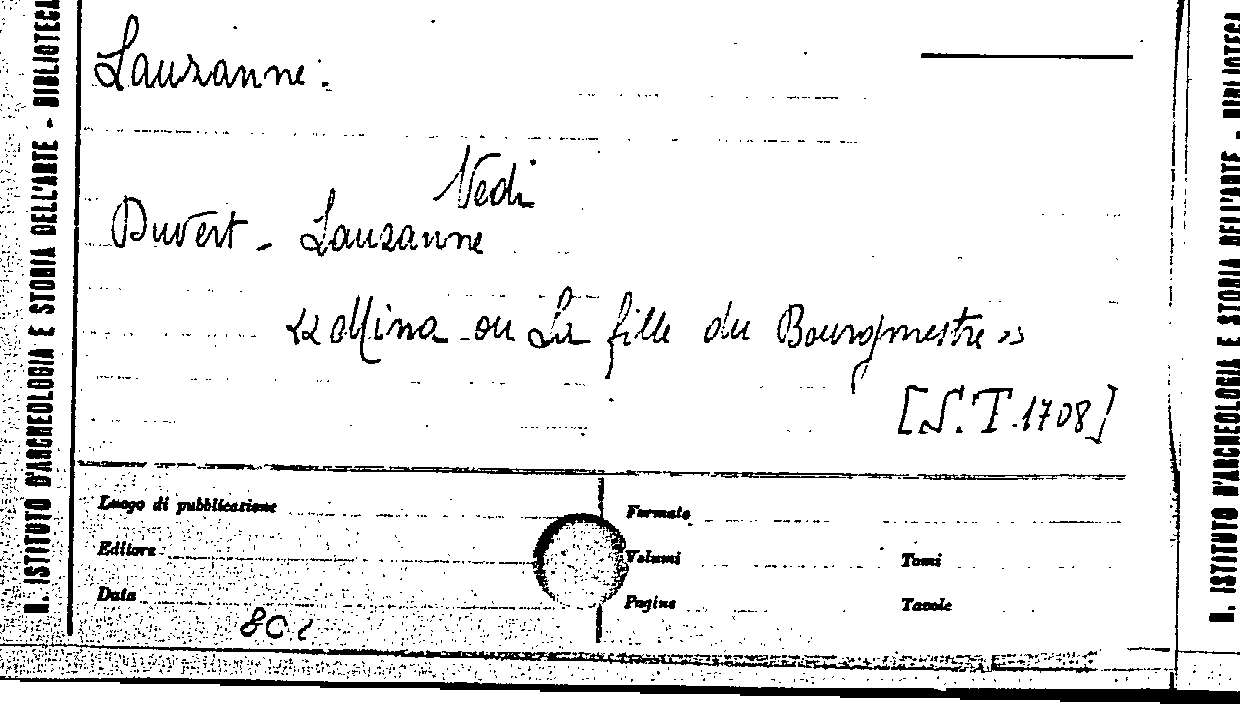 R. ISTITUTO D'ARCHEOLOGIA E STORIA DELL'ARTE - BIBLIOTECA
Lauzanne:
Vedi
Duvert - Lauzanne
« Mina ou La fille du Bourgmestre »
[S.T.1708]
Luogo di pubblicazione
Formato
Editore
Volumi
Tomi
Data
Pagine
Tavole
R. ISTITUTO D'ARCHEOLOGIA E STORIA DELL'ARTE - BIBLIOTECA